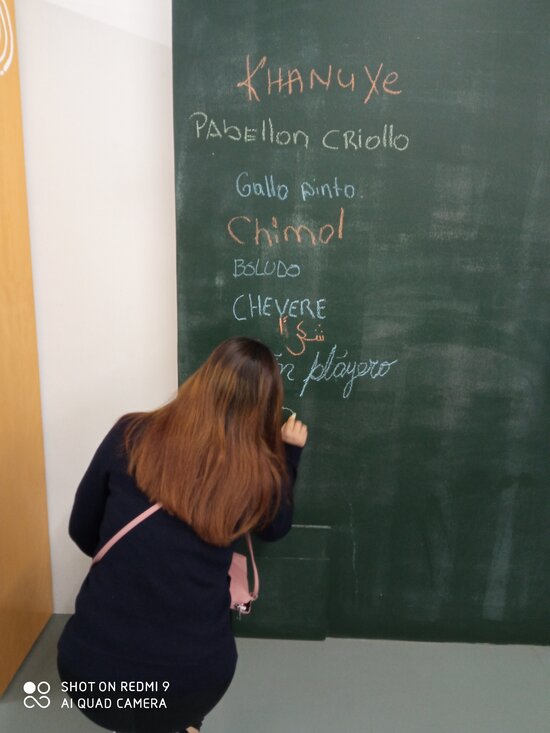 KHANUYE
PAbellon CRiollo
Gallo pinto.
Chimol
BSLUDO
CHEVERE
شكرًا
pláyero
SHOT ON REDMI 9
AI QUAD CAMERA